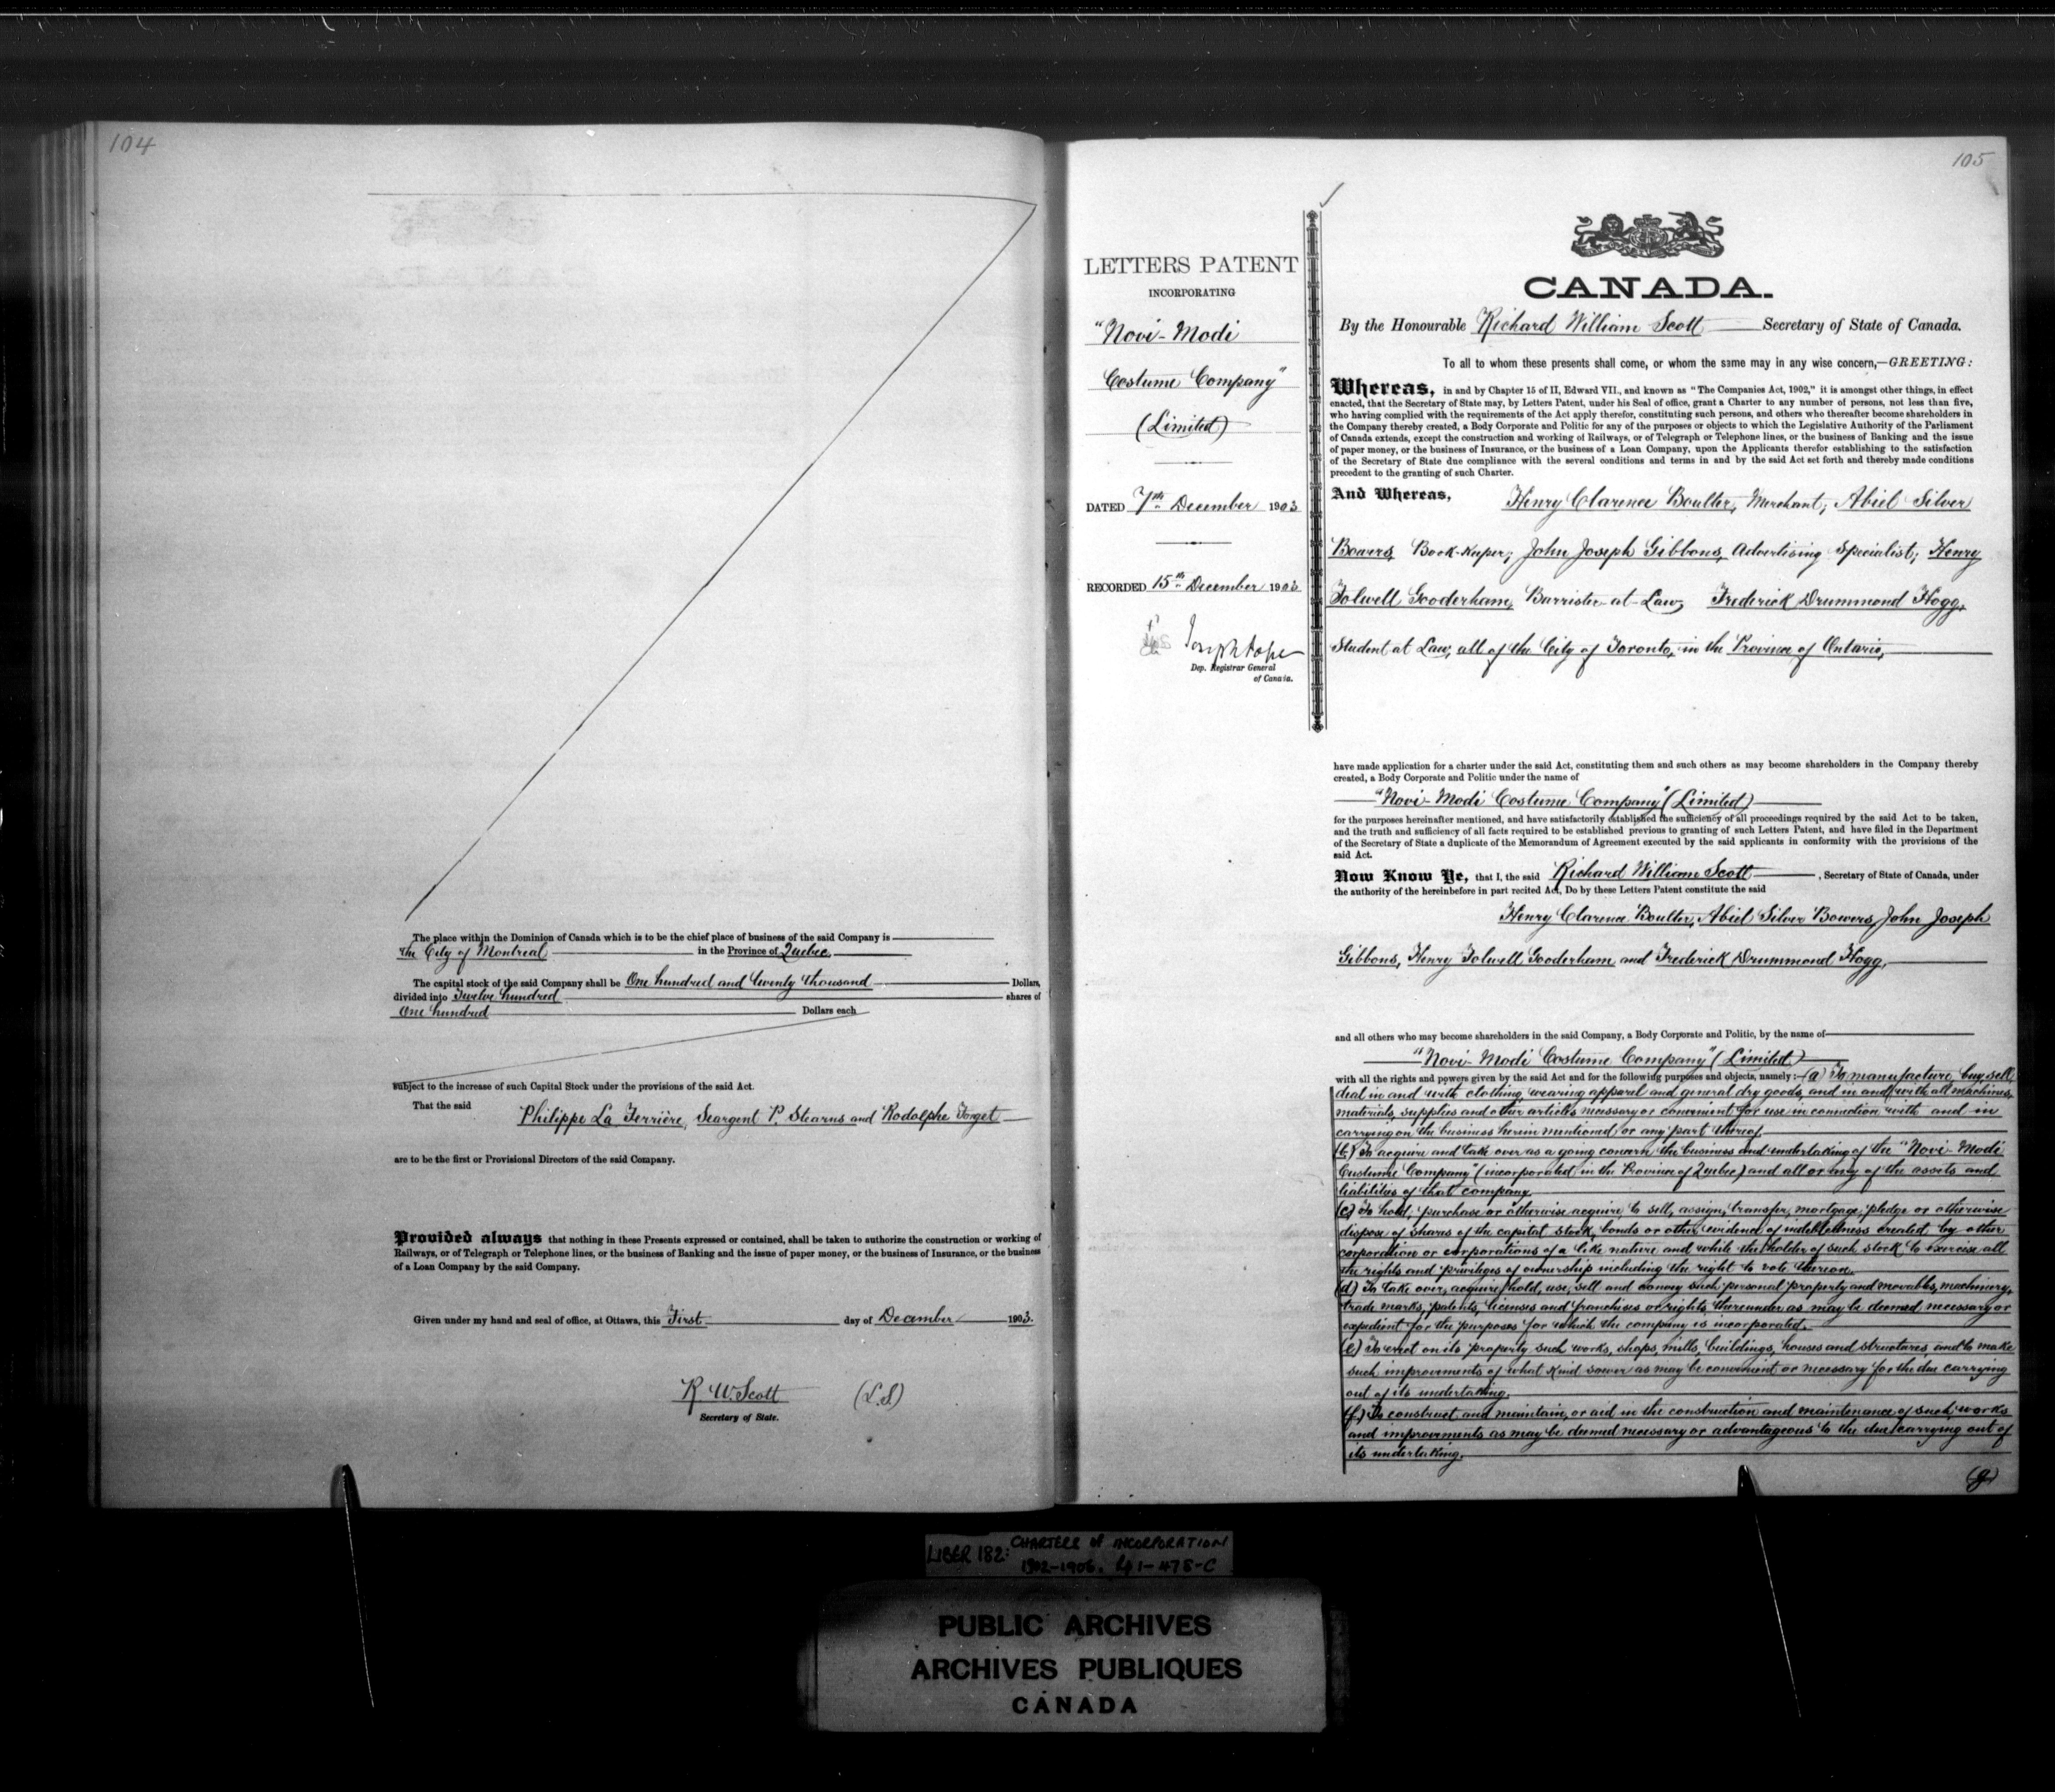 104
The place within the Dominion of Canada which is to be the chief place of business of the said Company is
the City of Montreal in the Province of Quebec.
The capital stock of the said Company shall be One hundred and twenty thousand Dollars,
divided into Twelve hundred shares of
One hundred Dollars each
subject to the increase of such Capital Stock under the provisions of the said Act.
That the said
Philippe La Ferrière, Seargent P. Stearns and Rodolphe Forget
are to be the first or Provisional Directors of the said Company.
Provided always that nothing in these Presents expressed or contained, shall be taken to authorize the construction or working of
Railways, or of Telegraph or Telephone lines, or the business of Banking and the issue of paper money, or the business of Insurance, or the business
of a Loan Company by the said Company.
Given under my hand and seal of office, at Ottawa, this First day of December 1903.
R. W. Scott (L.S)
Secretary of State.
105
LETTERS PATENT
INCORPORATING
"Novi-Modi
Costume Company"
(Limited)
DATED 7th December 1903
RECORDED 15th December 1903
Joseph Pope
Dep. Registrar General
of Canada.
CANADA.
By the Honourable Richard William Scott Secretary of State of Canada.
To all to whom these presents shall come, or whom the same may in any wise concern,—GREETING:
Whereas, in and by Chapter 15 of II, Edward VII., and known as "The Companies Act, 1902," it is amongst other things, in effect
enacted, that the Secretary of State may, by Letters Patent, under his Seal of office, grant a Charter to any number of persons, not less than five,
who having complied with the requirements of the Act apply therefor, constituting such persons, and others who thereafter become shareholders in
the Company thereby created, a Body Corporate and Politic for any of the purposes or objects to which the Legislative Authority of the Parliament
of Canada extends, except the construction and working of Railways, or of Telegraph or Telephone lines, or the business of Banking and the issue
of paper money, or the business of Insurance, or the business of a Loan Company, upon the Applicants therefor establishing to the satisfaction
of the Secretary of State due compliance with the several conditions and terms in and by the said Act set forth and thereby made conditions
precedent to the granting of such Charter.
And Whereas, Henry Clarence Boulter, Merchant; Abiel Silver
Bowers, Book-keeper; John Joseph Gibbons, Advertising Specialist; Henry
Folwell Gooderham, Barrister-at-Law; Frederick Drummond Hogg,
Student at Law, all of the City of Toronto, in the Province of Ontario,
have made application for a charter under the said Act, constituting them and such others as may become shareholders in the Company thereby
created, a Body Corporate and Politic under the name of
"Novi-Modi Costume Company" (Limited)
for the purposes hereinafter mentioned, and have satisfactorily established the sufficiency of all proceedings required by the said Act to be taken,
and the truth and sufficiency of all facts required to be established previous to granting of such Letters Patent, and have filed in the Department
of the Secretary of State a duplicate of the Memorandum of Agreement executed by the said applicants in conformity with the provisions of the
said Act.
Now Know Ye, that I, the said Richard William Scott, Secretary of State of Canada, under
the authority of the hereinbefore in part recited Act, Do by these Letters Patent constitute the said
Henry Clarence Boulter, Abiel Silver Bowers, John Joseph
Gibbons, Henry Folwell Gooderham and Frederick Drummond Hogg,
and all others who may become shareholders in the said Company, a Body Corporate and Politic, by the name of
"Novi-Modi Costume Company" (Limited)
with all the rights and powers given by the said Act and for the following purposes and objects, namely:—(a) To manufacture, buy, sell,
deal in and with clothing, wearing apparel and general dry goods, and in and with all machines,
materials, supplies and other articles necessary or convenient for use in connection with and in
carrying on the business herein mentioned or any part thereof.
(b) To acquire and take over as a going concern the business and undertaking of the "Novi-Modi
Custume Company" (incorporated in the Province of Quebec) and all or any of the assets and
liabilities of that company.
(c) To hold, purchase or otherwise acquire, to sell, assign, transfer, mortgage, pledge or otherwise
dispose of shares of the capital stock, bonds or other evidence of indebtedness created by other
corporation or corporations of a like nature and while the holder of such stock to exercise all
the rights and privileges of ownership including the right to vote thereon.
(d) To take over, acquire, hold, use, sell and convey such personal property and movables, machinery,
trade marks, patents, licenses and franchises or rights thereunder as may be deemed necessary or
expedient for the purposes for which the company is incorporated.
(e) To erect on its property such works, shops, mills, buildings, houses and structures, and to make
such improvements of what kind soever as may be convenient or necessary for the due carrying
out of its undertaking.
(f) To construct and maintain, or aid in the construction and maintenance of such works
and improvements as may be deemed necessary or advantageous to the due carrying out of
its undertaking.
(g)
LIBER 182: CHARTERS of INCORPORATION
1902-1906.
PUBLIC ARCHIVES
ARCHIVES PUBLIQUES
CANADA